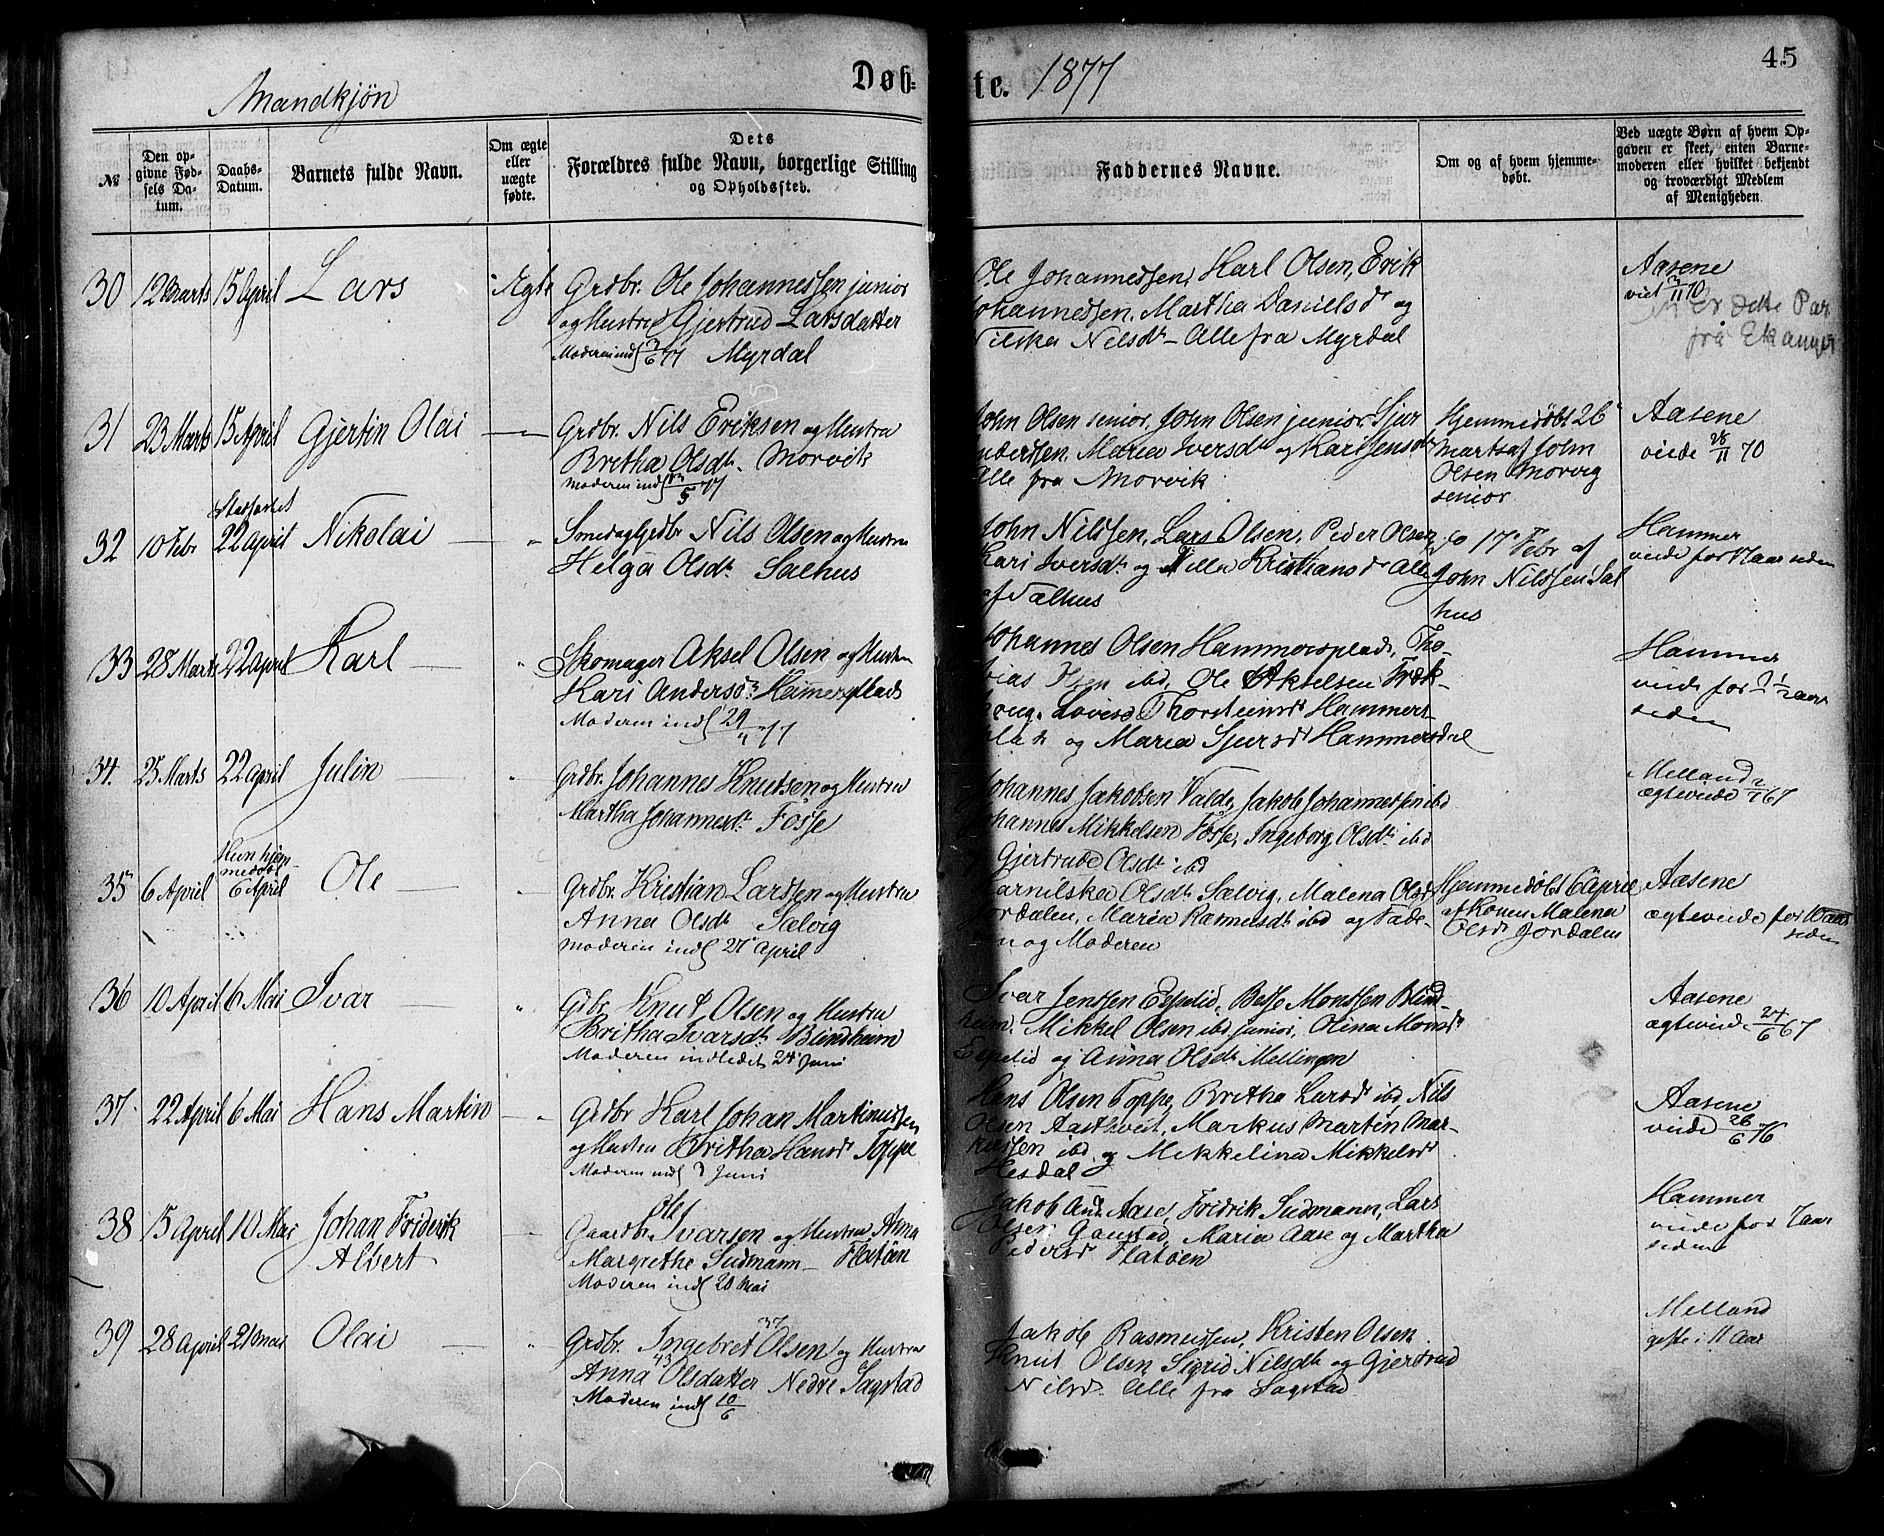 45
Mandkjøn
Døb-
te. 1877
№
Den op-
givne Fød-
sels Da-
tum.
Daabs-
Datum.
Barnets fulde Navn.
Om ægte
eller
uægte
fødte.
Dets
Forældres fulde Navn, borgerlige Stilling
og Opholdssted.
Faddernes Navne.
Om og af hvem hjemme-
døbt.
Ved uægte Børn af hvem Op-
gaven er skeet, enten Barne-
moderen eller hvilket bekjendt
og troværdigt Medlem
af Menigheden.
30
12 Marts
15 April
Lars
Ægte
Grdbr. Ole Johannessen junior
og Hustru Gjertrud Larsdatter
Moderen indl 3/6 77 Myrdal
Ole Johannessen, Karl Olsen, Erik
Johannessen, Martha Danielsdr og
Nilska Nilsdr - Alle fra Myrdal
Aasene
Er dette Par
frå Ekanger
31
23 Marts
15 April
Gjertin Olai
Grdbr. Nils Eriksen og Hustru
Britha Olsdtr. Morvik
John Olsen senior, John Olsen junior, Sjur
Anderssen, Maria Iversdr og Kari Jensdr
Alle fra Morvik
Hjemmedøbt 26
Marts af John
Olsen Morvig
senior
Aasene
viede 28/11 70
32
10 Febr
Stadfæstet
22 April
Nikolai
Nils Olsen og Hustru
Helga Olsdtr. Salhus
John Nilssen, Lars Olsen, Peder Olsen
Kari Iversdr og Milla Kristiansdr Alle
af Salhus
17 Febr af
John Nilssen Sal
hus
Hammer
viede for 17 aar siden
33
28 Marts
22 April
Karl
Skomager Aksel Olsen og Hustru
Kari Andersdr Hammersplads
Moderen indl 29/4 77
Johannes Olsen Hammersplads, Tho-
bias ibid, Ole Akselsen
Lovise Thorsteinsdr Hammers-
plads og Maria Sjursdr Hammersdal
Hammer
viede for aar
siden
34.
25 Marts
22 April
Julin
Grdbr. Johannes Knutsen og Hustru
Martha Johannesdtr. Fosse
Johannes Jakobsen Valde, Jakob Johannessen ibd
Johannes Mikkelsen Fosse, Ingeborg Olsdtr ibd
Gjertrude Olsdtr ibd
Melland
ægteviede 67
35
6 April
Kun hjem-
medøbt
6 April
Ole
Grdbr. Kristian Larssen og Hustru
Anna Olsdtr Salvig
Moderen indl 27 April
Olsdtr Salvig, Malena Olsdr
Jordalen, Maria Rasmusdtr ibd og Fade-
ren og Moderen
Hjemmedøbt 6 April
af Konen Malena
Olsdr Jordalen
Aasene
ægteviede for 10 aar
siden
36
10 April
6 Mai
Ivar
Grdbr. Knut Olsen og Hustru
Britha Ivarsdtr Blindheim
Moderen indledet 24 Juni
Ivar Jenssen Espelid, Besse Monssen Blind-
heim, Mikkel Olsen ibd junior, Olina Monsdr
Espelid og Anna Olsdtr Mellingen
Aasene
ægteviede 24/6 67
37
22 April
6 Mai
Hans Martin
Grdbr Karl Johan Martinussen
og Hustru Britha Hansdr Toppe
Moderen indl 3 Juni
Hans Olsen Toppe, Britha Larsdr ibd, Nils
Olsen Aasthveit, Markus Martin Mar-
kussen ibd, og Mikkelina Mikkelsdr
Hesdal
Aasene
viede 26/6 76
38
15 April
10 Mai
Johan Friderik
Albert
Ole
Gaardbr. Ivarsen og Hustru Anna
Margrethe Sudmann - Flatøen
Moderen indl 20 Mai
Jakob Aase, Fridrik Sudmann, Lars
Olsen Gaustad, Maria Aase og Martha
Pedersdr Flatøen
Hammer
viede for 7 aar
siden
39
28 April
21 Mai
Olai
Grdbr. Ingebret 37 Olsen og Hustru
Anna 43 Olsdatter Nedre Sagstad
Moderen indl 10/6
Jakob Rasmussen, Kristen Olsen
Knut Olsen, Sigrid Nilsdtr og Gjertrud
Nilsdr Alle fra Sagstad
Melland
gifte i 11 Aar